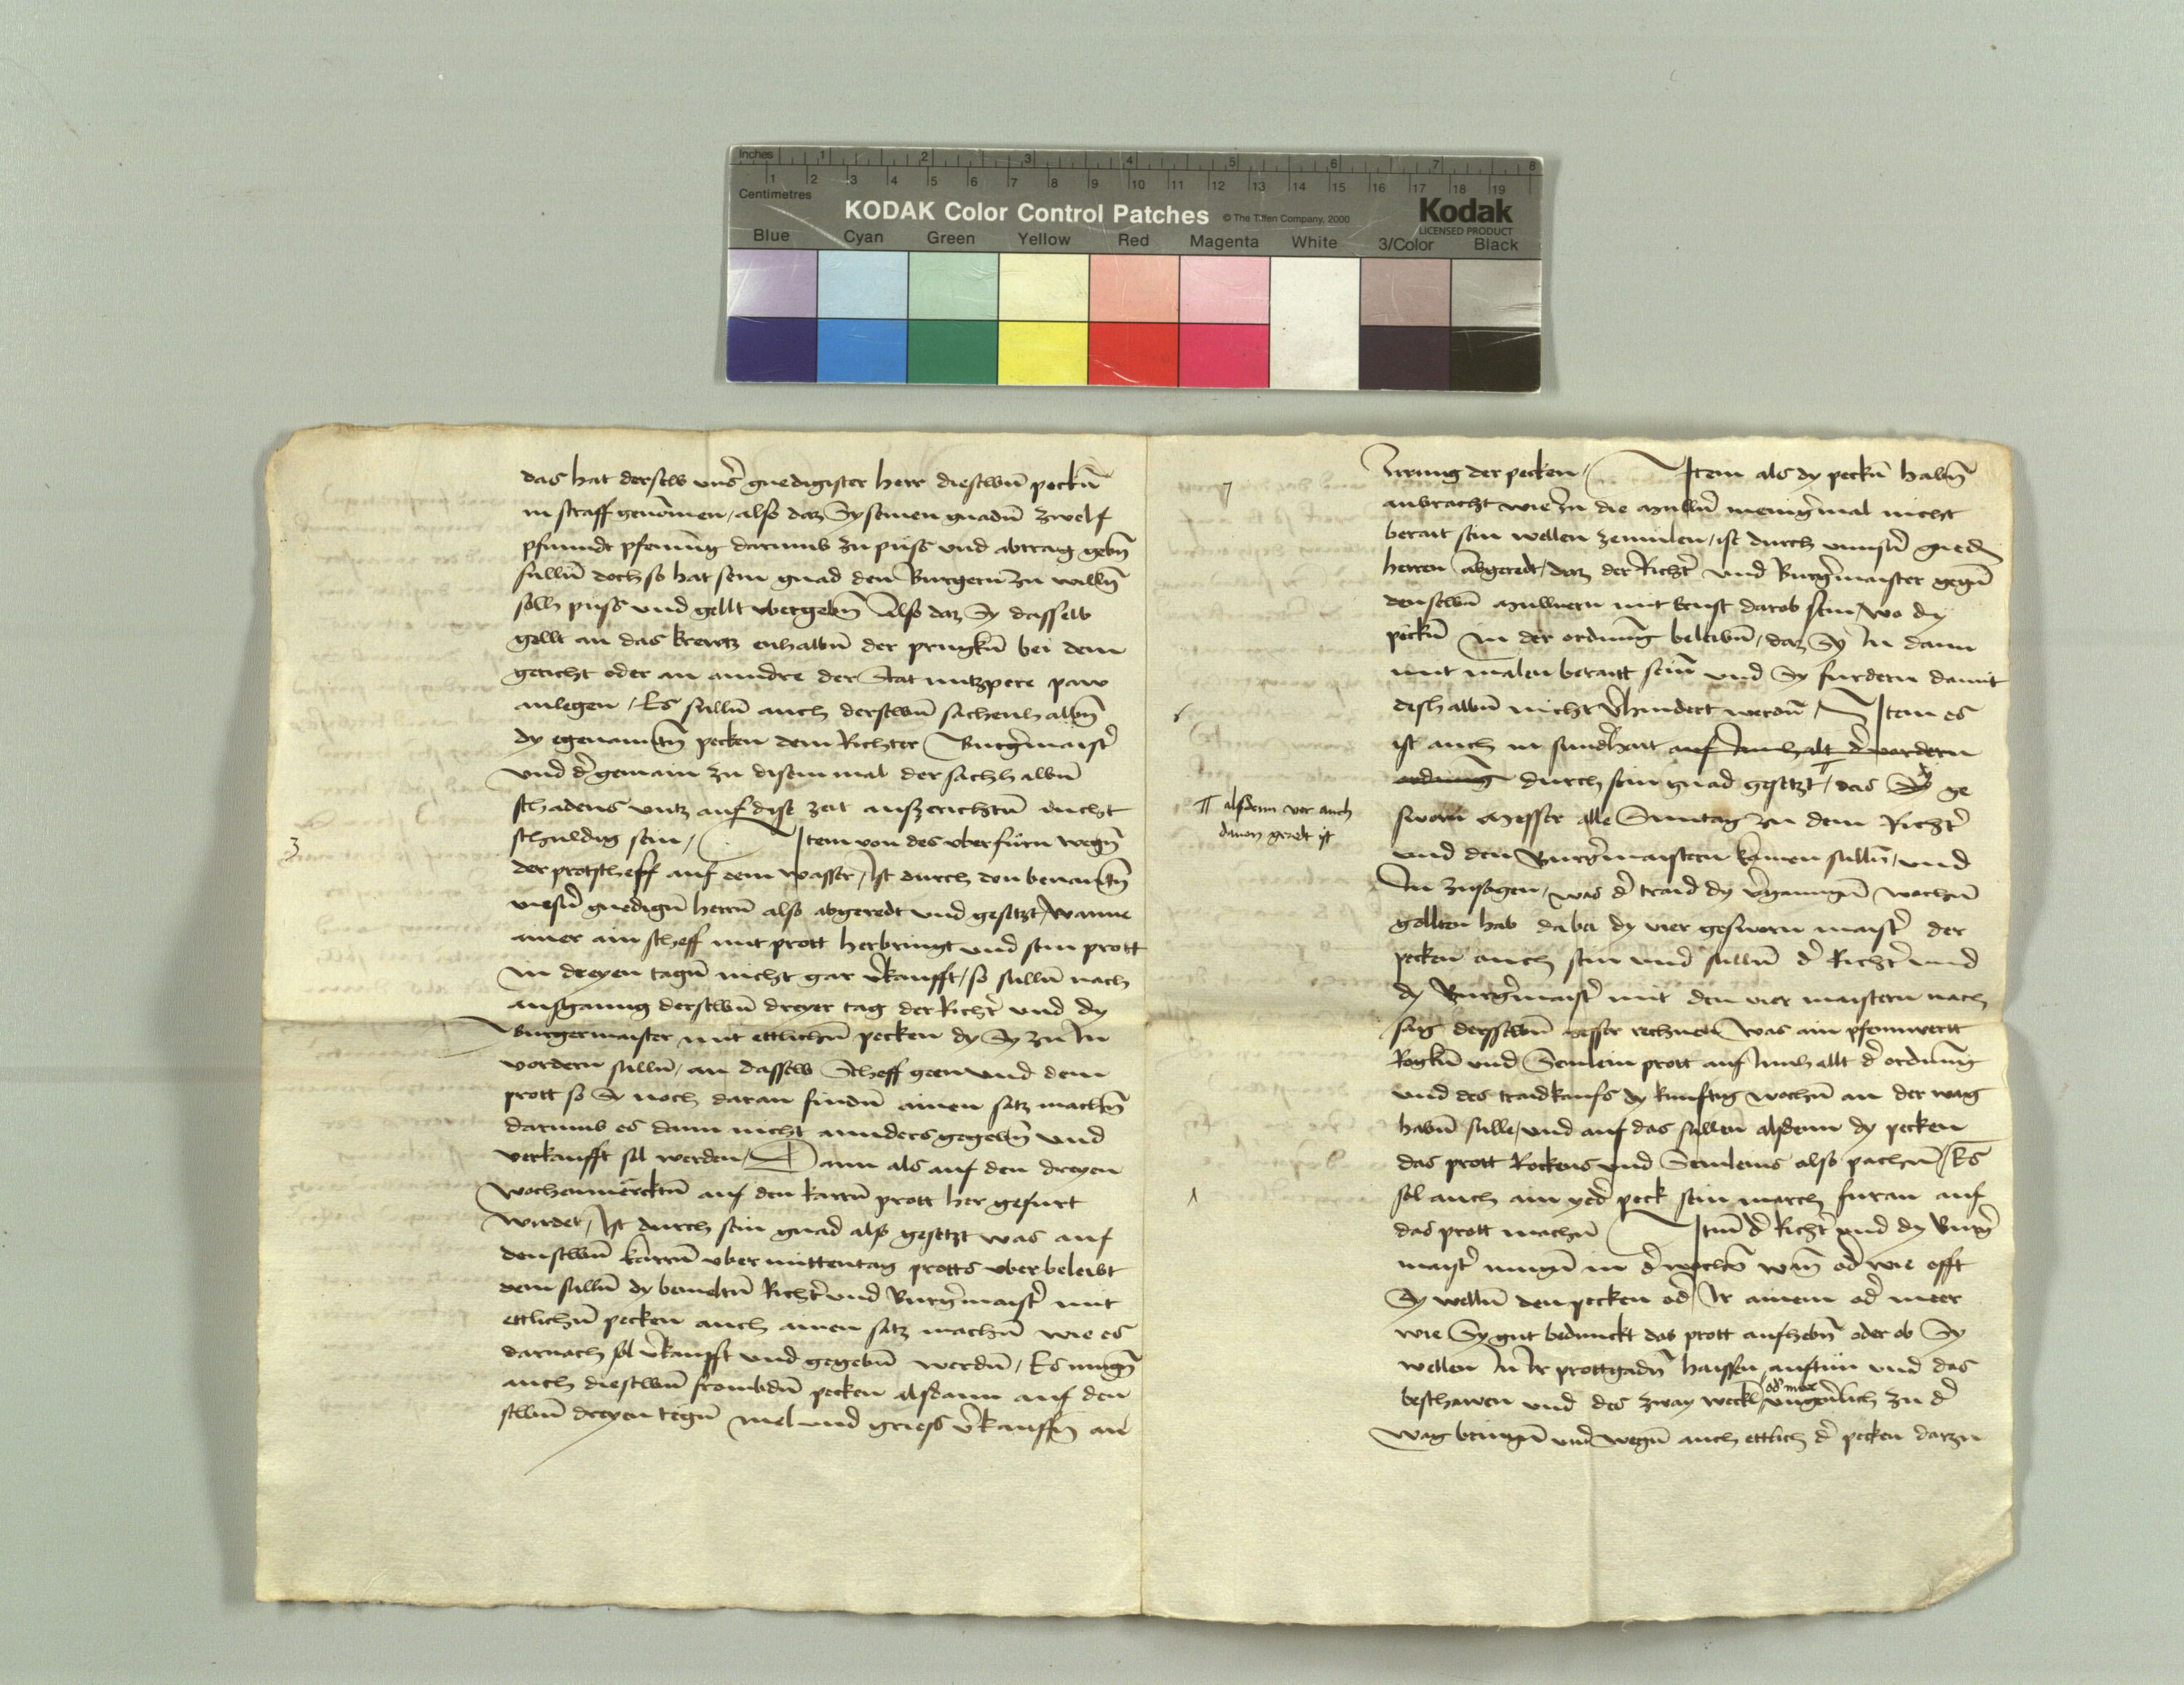 Inches 1 2 3 4 5 6 7 8
1 2 3 4 5 6 7 8 9 10 11 12 13 14 15 16 17 18 19
Centimetres
KODAK Color Control Patches © The Tiffen Company, 2000 Kodak
LICENSED PRODUCT
Blue Cyan Green Yellow Red Magenta White 3/Color Black
das hat derselb unser gnedigister herr dieselbn̄ peckn̄
in straff genomen / also daz Sy seinen gnadn̄ zwelf
pfunndt pfening darumb zu puss und abtrag gebn̄
sulln̄ doch so hat sein gnad den Burgern zu willn̄
solh puss und gellt ubergebn̄ Also daz Sy dasselb
gellt an das krewtz enhalbn̄ der prugkn̄ bei dem
gericht oder an anndre der Stat nutzpere paw
anlegen / Es sulln̄ auch derselbn̄ sachenhalbn̄
dy egenantn̄ pecken dem Richter Burgermaister
und der gemain zu disem mal der sachhalbn̄
schadens untz auf dise zeit ausszerichtn̄ nicht
schuldig sein /
3
Item von des uberfurn wegn̄
der protscheff auf dem wasser / Ist durch den benantn̄
unsern gnedign̄ herrn̄ also abgeredt und gesetzt / wanne
ainer ain scheff mit prott herbringt und sein prott
in dreyen tagn̄ nicht gar verkaufft / so sulln̄ nach
ausganng derselbn̄ dreyer tag der Richter und dy
Burgermaister mit ettlichn̄ pecken dy Sy zu In
vordern sulln̄ / an dasselb Scheff geen und dem
prott so Sy noch daran findn̄ ainen satz machn̄
darumb es dann nicht annders gegebn̄ und
verkaufft sol werden / Dann als auf den dreyen
wochenmercktn̄ auf den karrn̄ prott her gefurt
wirdet / Ist durch sein gnad also gesetzt was auf
denselbn̄ karrn̄ uber mittentag protts uberbeleibt
dem sulln̄ dy bemeltn̄ Richter und Burgermaister mit
ettlichn̄ pecken auch ainen satz machn̄ wie es
darnach sol verkaufft und gegebn̄ werdn̄ / Es mugn̄
auch dieselbn̄ frombdn̄ pecken alsdann auf den
selbn̄ dreyen tegn̄ mel und griess verkauffn̄ an
Irrung der pecken /
7
Item als dy peckn̄ habn̄
anbracht wie In die mullner menigermal nicht
berait sein wellen zemulen / ist durch unnsern gnedn̄
herren abgeredt / daz der Richter und Burgermaister gegn̄
denselbn̄ mullnern mit ernst darob sein / wo dy
peckn̄ in der ordnung beleibn̄ / daz Sy In dann
mit malen beraitt sein und Sy furdern damit
deshalbn̄ nicht verhindert werdn̄ / Item es
ist auch in sunderhait auf Innhalt der vordern
ordnung durch sein gnad gesetzt / das Dy ge
π alsdenn vor auch
davon geredt ist
sworn Messer alle Sunntag zu dem Richter
und den Burgermaistern komen sulln̄ / und
In zusagen / was der traid dy vergangn̄ wochn̄
gollten hab dabei dy vier gesworn maister der
pecken auch sein und sulln̄ der Richter und
dy Burgermaister mit den vier maistern nach
sag derselbn̄ messer rechnen was ain pfennwertt
Rogkn̄ und Semlein prott auf Innhallt der ordnung
und des traidkaufs dy kunftig wochn̄ an der wag
habn̄ sulle / und auf das sullen alsdenn dy pecken
das prott Rockens und Semleins also pachn̄ / Es
sol auch ain yeder peck sein march furan auf
das prott machn̄ Item der Richter und dy Burger
maister mugn̄ in der wochn̄ wenn oder wie offt
Sy welln̄ den pecken oder Ir ainem oder meer
wie Sy gut bedunckt das prott aufhebn̄ oder ob Sy
wellen In Ir prottgadn̄ haissen auftun und das
beschawen und des zway weckl oder mer ungeverlich zu der
wag bringn̄ und wegn̄ auch ettlich der pecken darzu